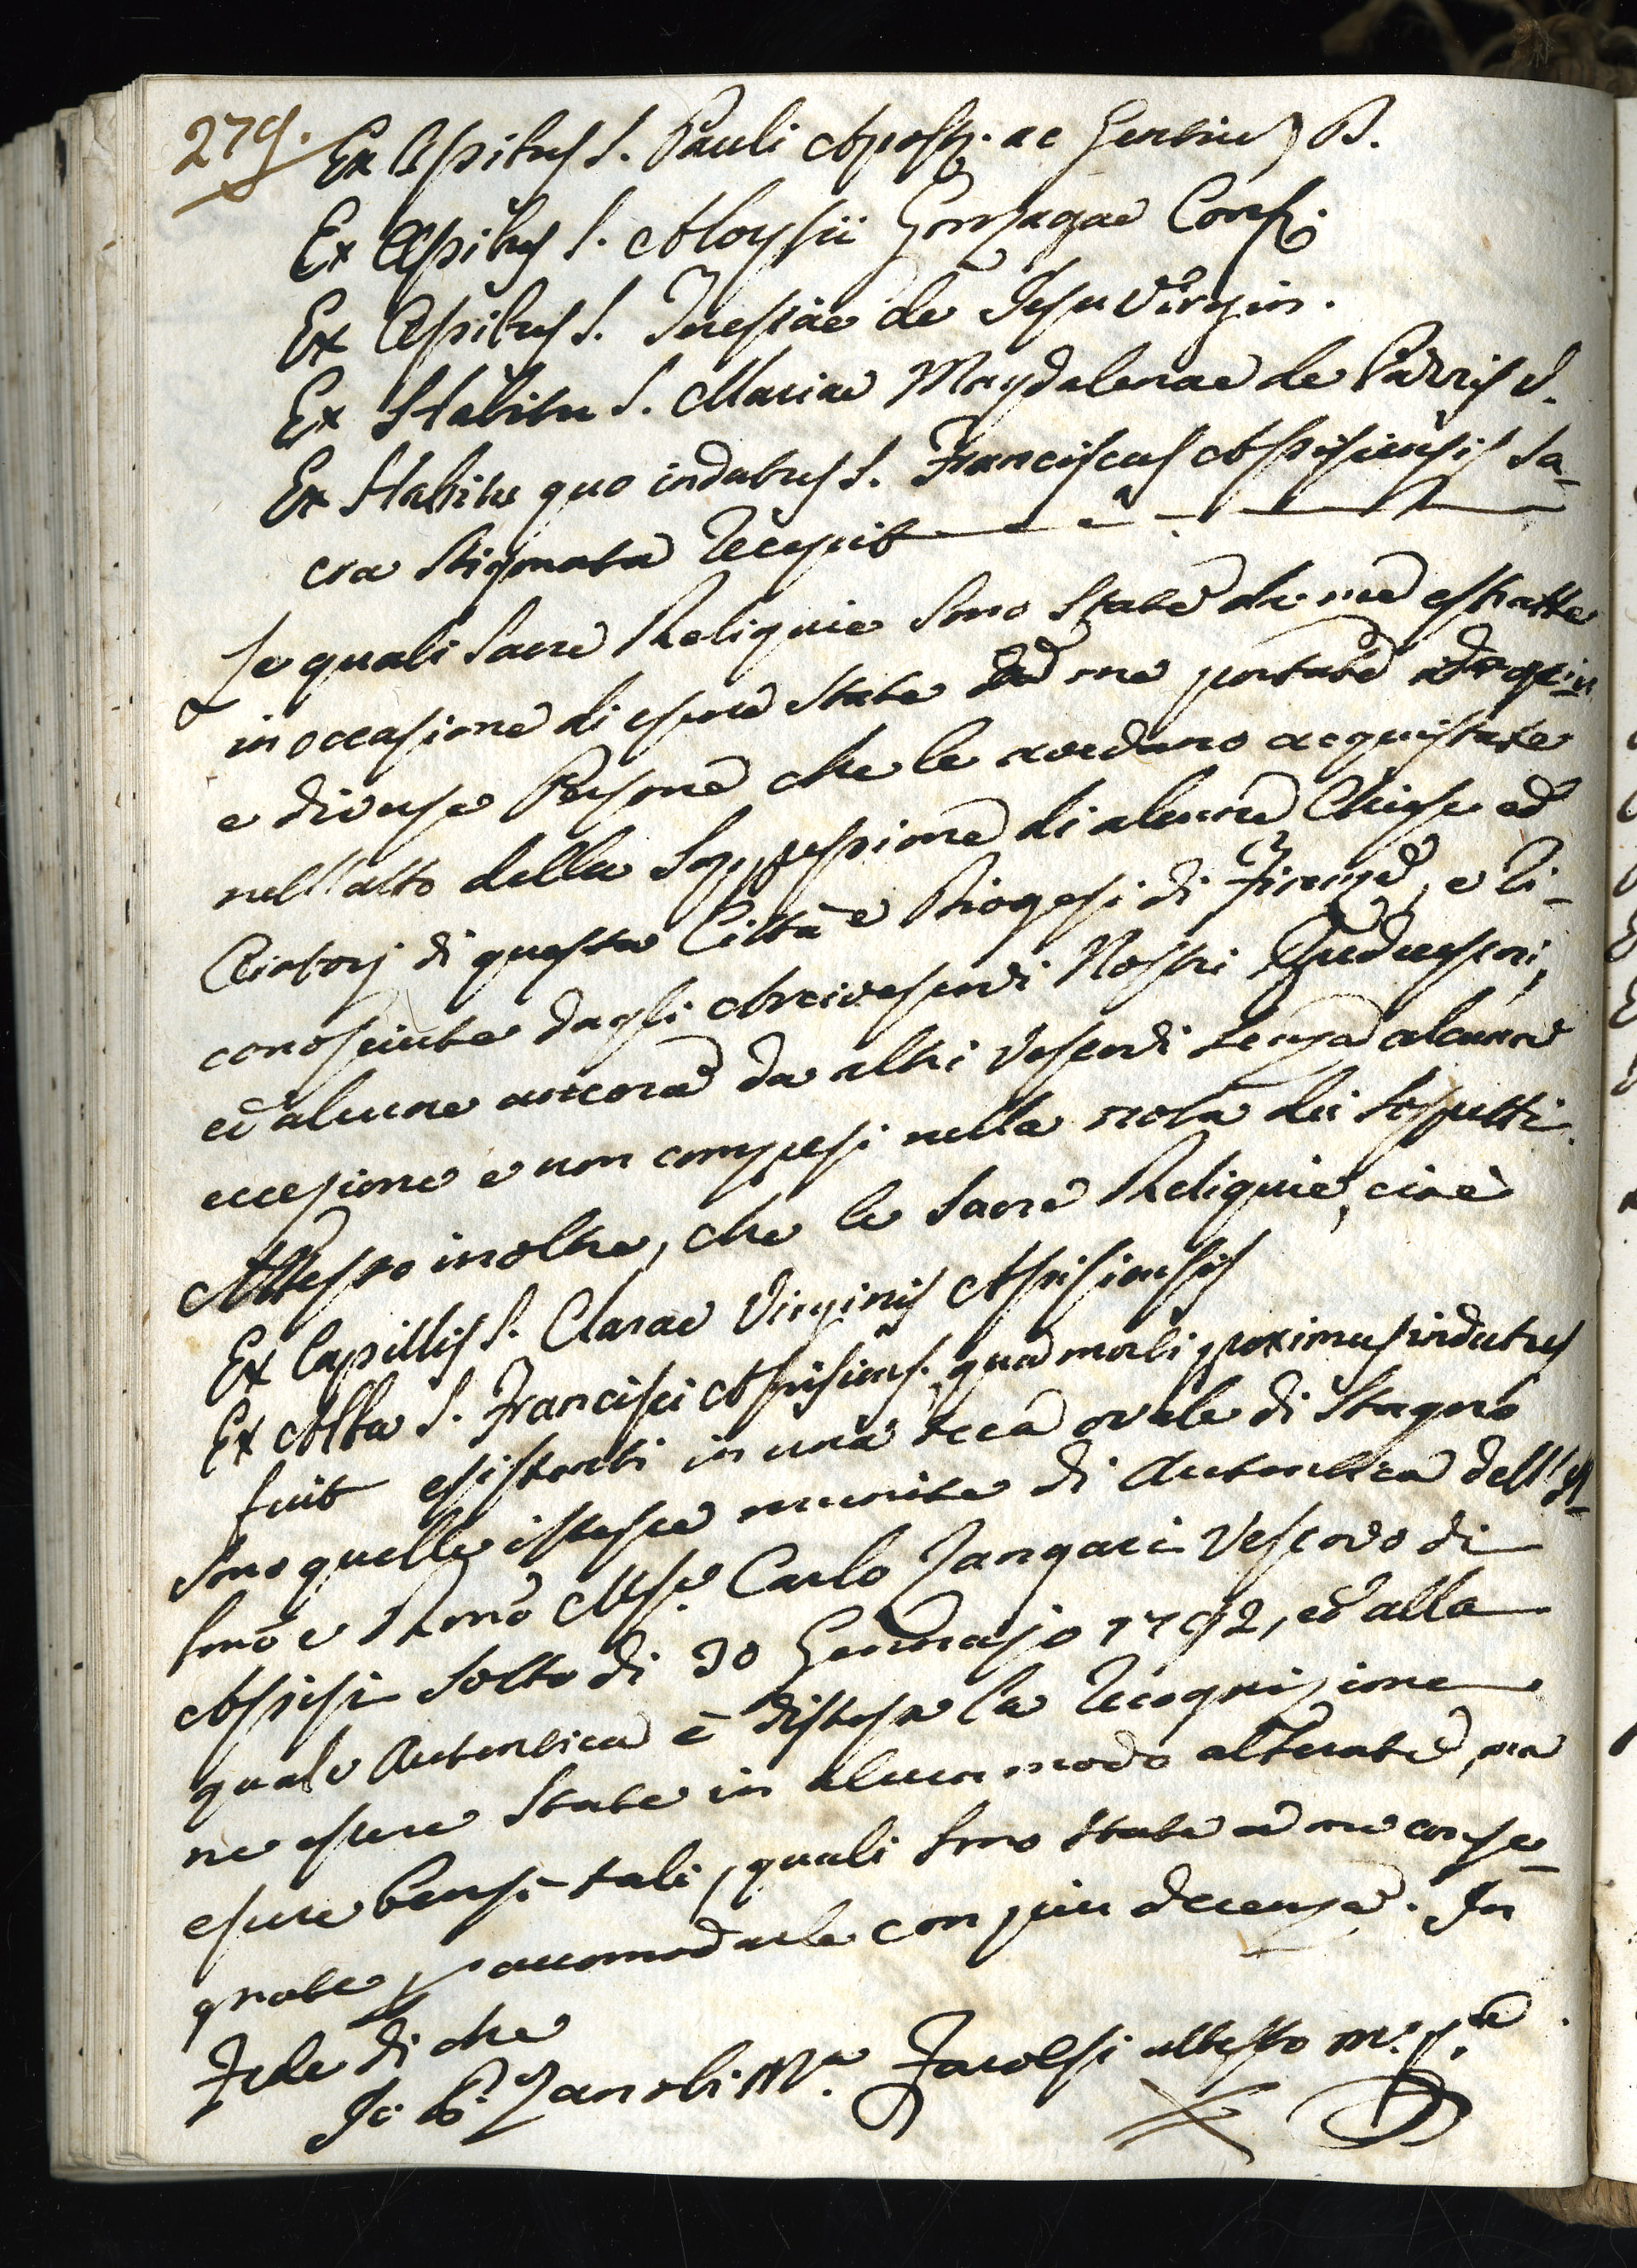 279.
Ex Ossibus S. Pauli Apost. ac Gentium D.
Ex Ossibus S. Aloysii Gonzagae Conf.
Ex Ossibus S. Teresiae de Jesu Virgin.
Ex Habitu S. Mariae Magdalenae de Pazzis V.
Ex Habitu quo indutus S. Franciscus Assisiensis Sa-
cra Stigmata recepit
Le quali Sacre Reliquie sono state da me estratte
in occasione di essere state da me portate
e diverse Persone che le avevano acquistate
nell'atto della Soppressione di alcune Chiese ed
Oratorj di questa Città e Diogesi di Firenze, e ri-
conosciute dagli Arcivescovi Nostri Predecessori,
ed alcune ancora da altri Vescovi senza alcuna
eccezione e non compresi nella nota dei sospetti.
Attesto inoltre, che le Sacre Reliquie, cioè
Ex Capillis S. Clarae Virginis Assisiensis
Ex Alba S. Francisci Assisiens. qua morti proximus indutus
fuit esistenti in una teca ovale di Stagno
Sono quelle istesse munite di Autentica dell' Il-
lmo e Rmo Msr. Carlo Zangari Vescovo di
Assisi sotto dì 30 Gennajo 1792, ed alla
quale Autentica è distesa la recognizione
ne essere state in alcun modo alterate, ma
essere bensì tali, quali sono state a me conse-
gnate p accomodarle con piu decenza. In
Fede di che
Io P. Zanobi Ma. attesto m. p.a